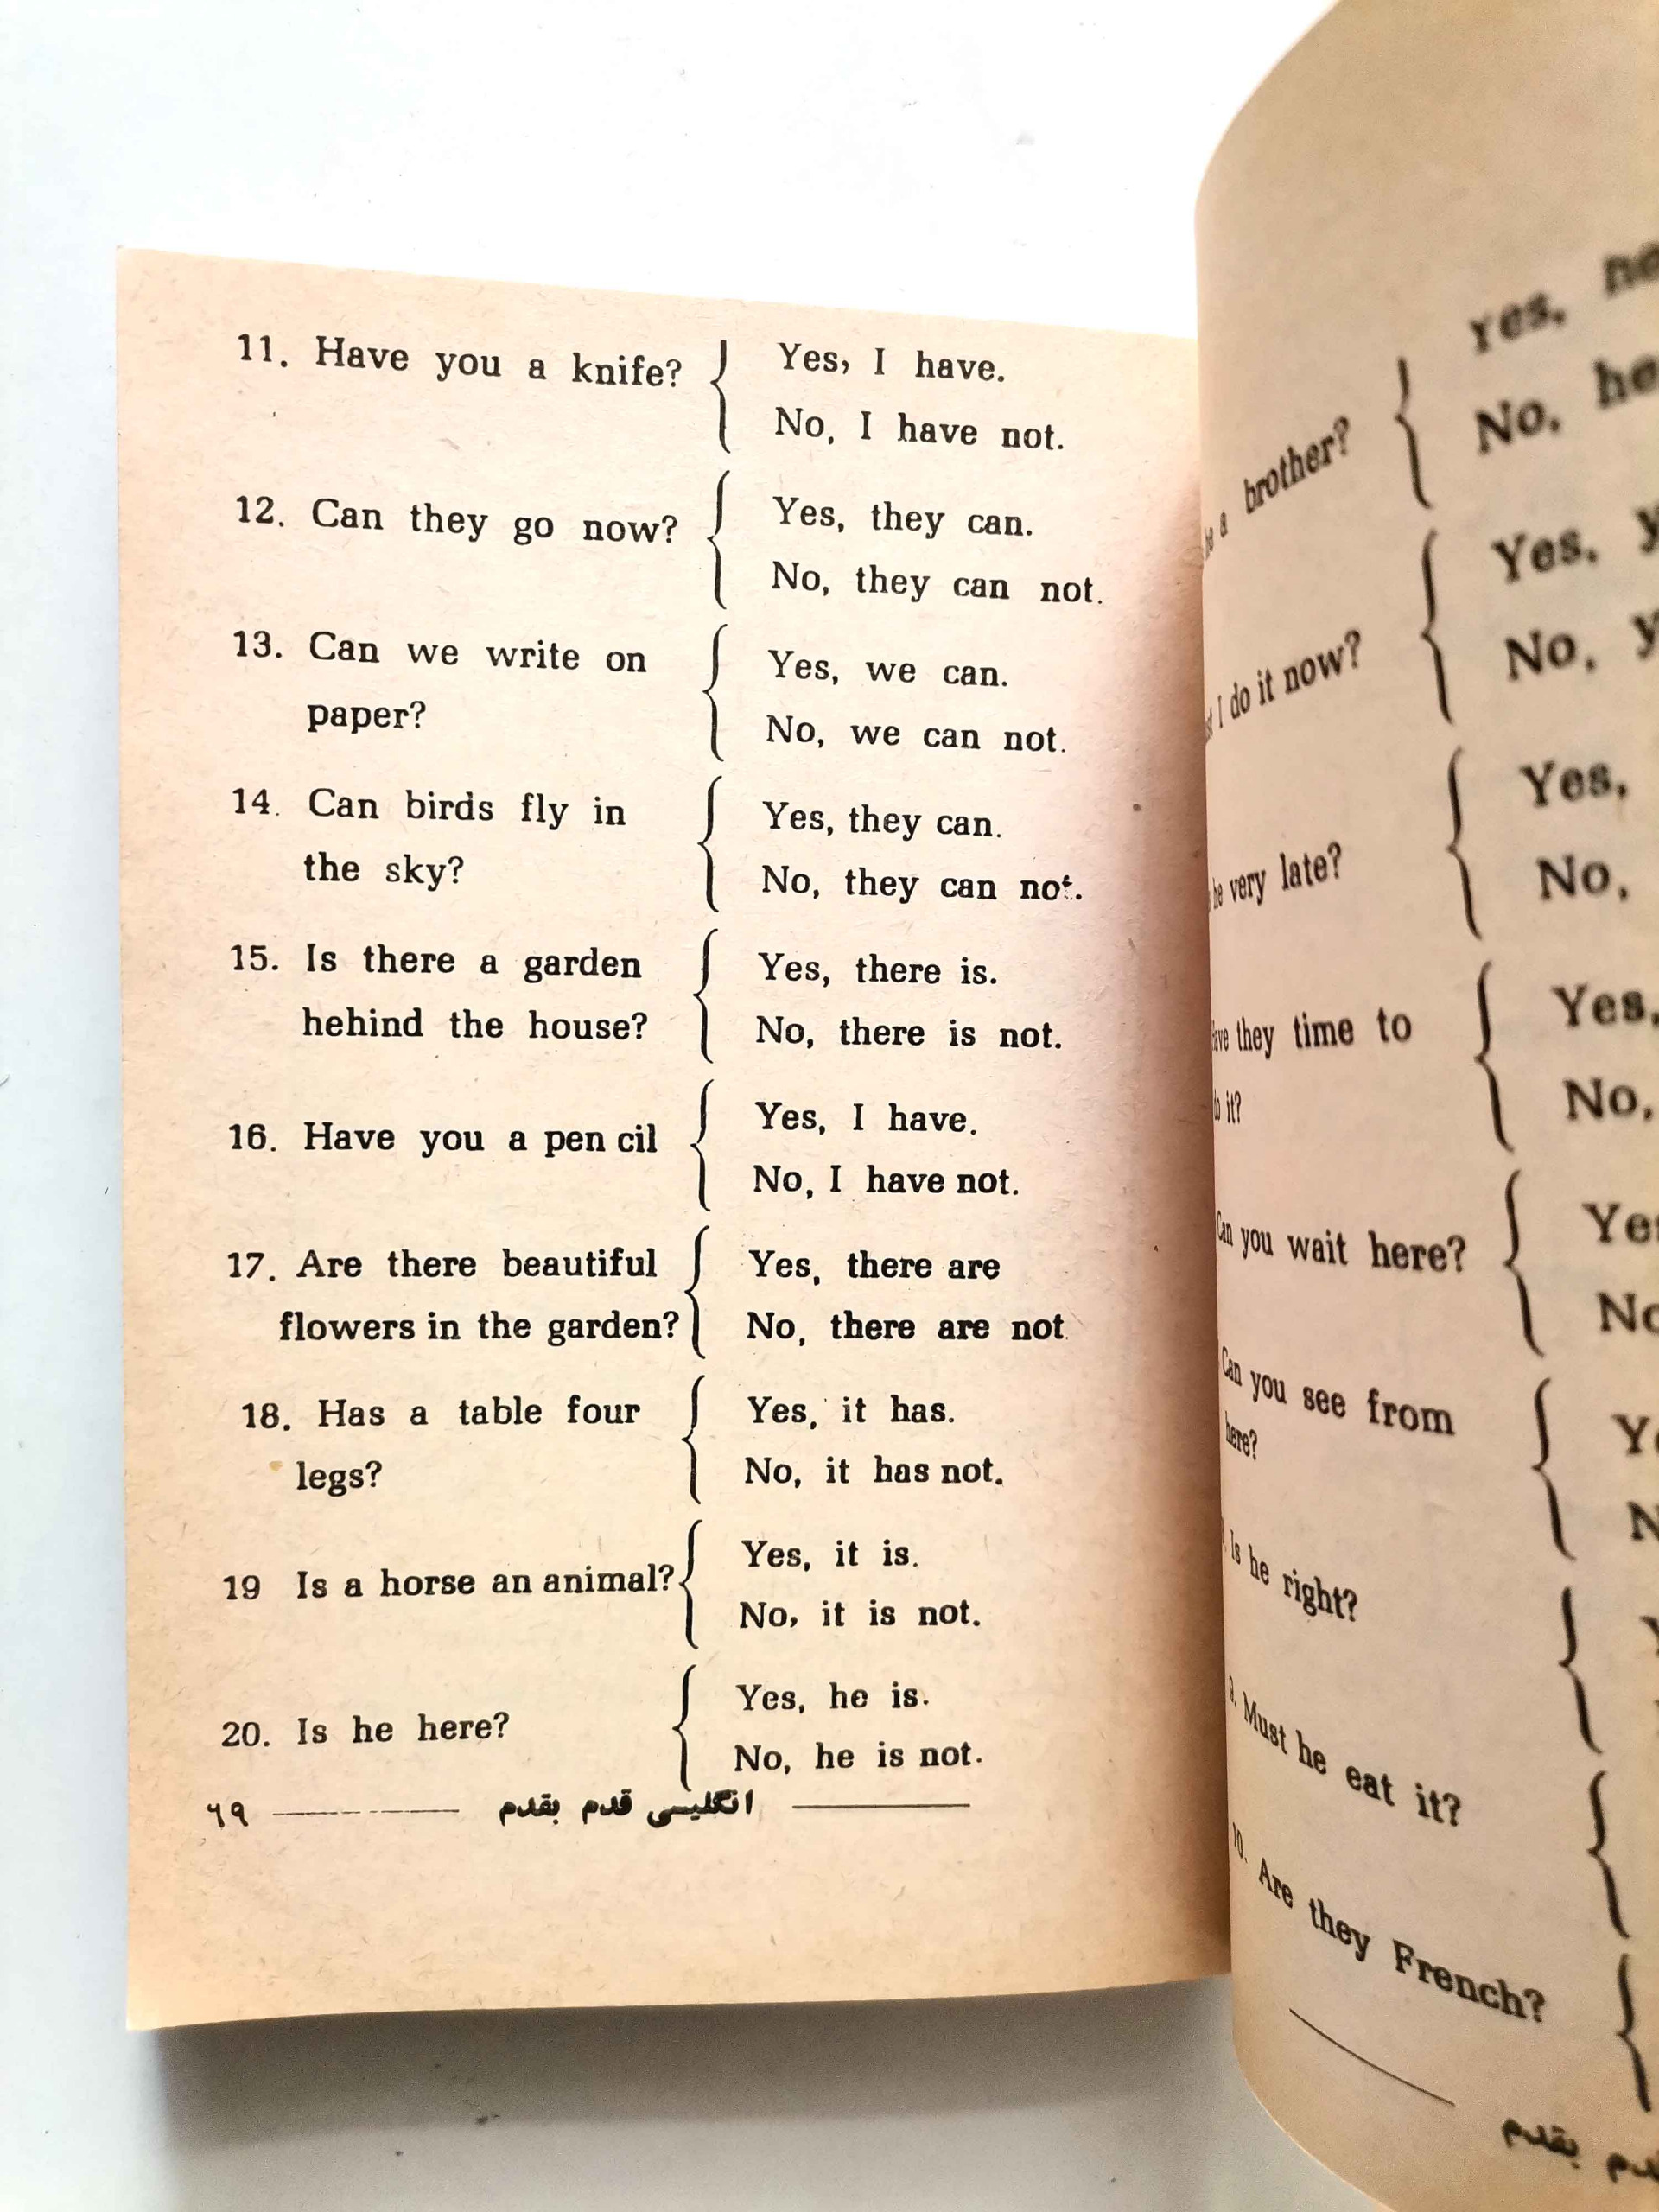 11. Have you a knife?
Yes, I have.
No, I have not.
12. Can they go now?
Yes, they can.
No, they can not.
13. Can we write on
paper?
Yes, we can.
No, we can not.
14. Can birds fly in
the sky?
Yes, they can.
No, they can not.
15. Is there a garden
hehind the house?
Yes, there is.
No, there is not.
16. Have you a pen cil
Yes, I have.
No, I have not.
17. Are there beautiful
flowers in the garden?
Yes, there are
No, there are not
18. Has a table four
legs?
Yes, it has.
No, it has not.
19 Is a horse an animal?
Yes, it is.
No, it is not.
20. Is he here?
Yes, he is.
No, he is not.
انگلیسی قدم بقدم ۶۹
a brother?
Yes,
No,
I do it now?
Yes,
No,
very late?
Yes,
No,
they time to
it?
Yes,
No,
Can you wait here?
Can you see from
here?
Is he right?
9. Must he eat it?
10. Are they French?
بقدم